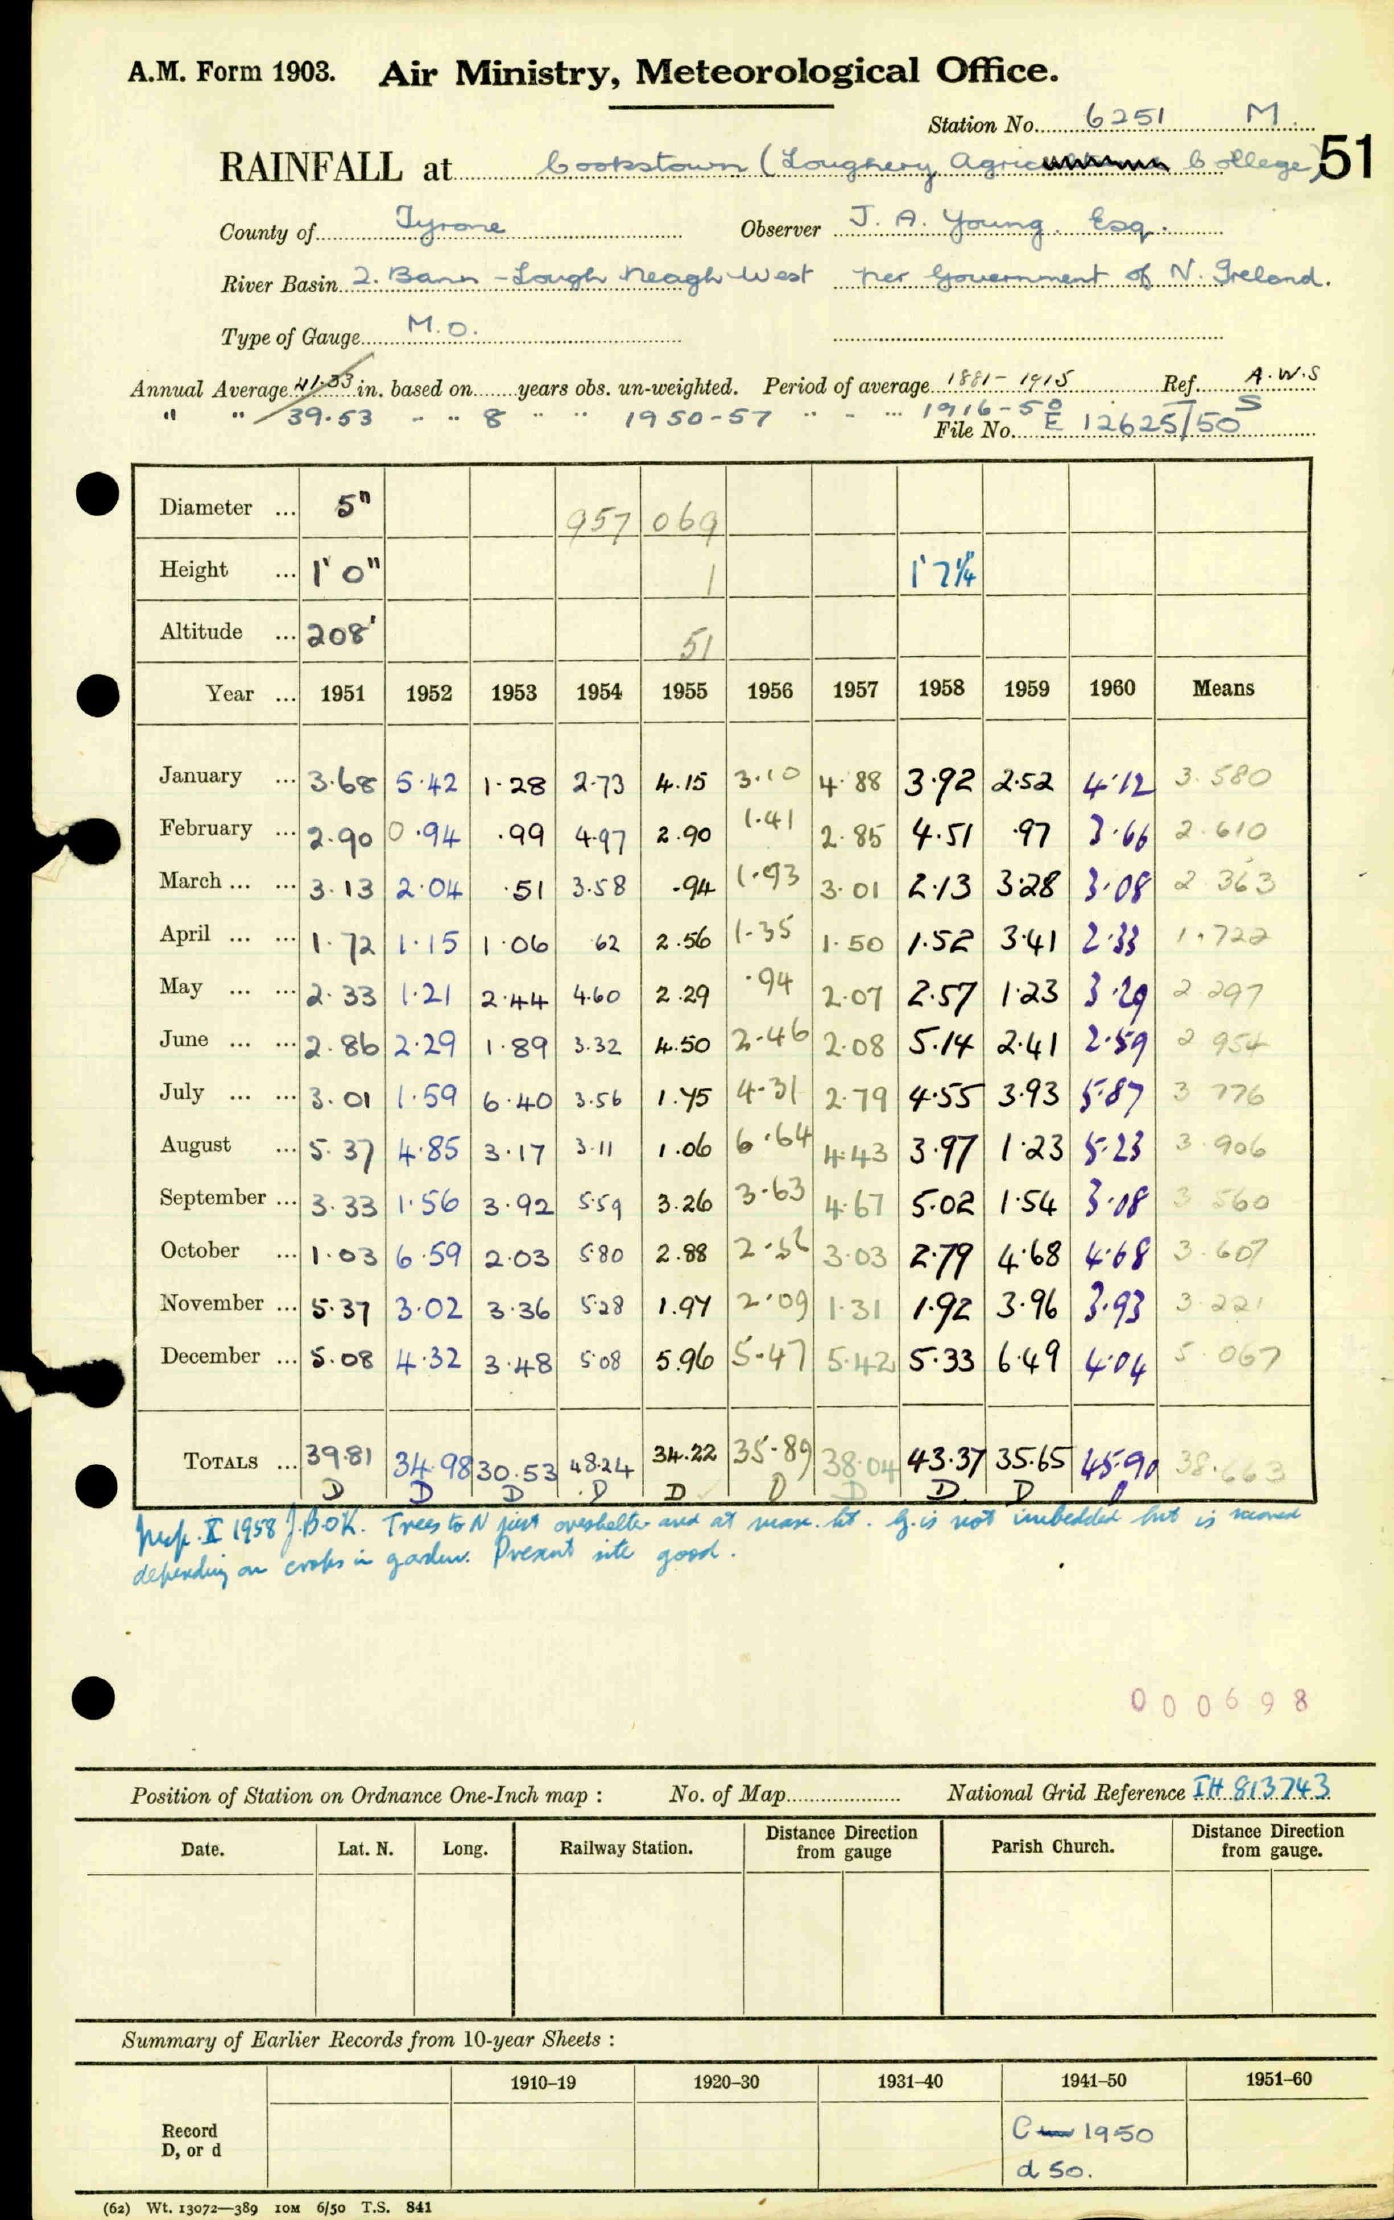 A.M. Form 1903. Air Ministry, Meteorological Office.
Station No. 6251 M.
RAINFALL at Cookstown (Loughery Agric College) 51
County of Tyrone Observer J. A. Young. Esq.
River Basin 2. Bann - Lough Neagh West per Government of N. Ireland.
Type of Gauge M.O.
Annual Average 41.33 in. based on years obs. un-weighted. Period of average 1881-1915 Ref. A.W.S
" " 39.53 - " 8 " " 1950-57 " - " 1916-50
File No. E 12625/50
Diameter ... 5" 957 069
Height ... 1' 0" 1 1' 7¼"
Altitude ... 208' 51
Year ... 1951 1952 1953 1954 1955 1956 1957 1958 1959 1960 Means
January ... 3.68 5.42 1.28 2.73 4.15 3.10 4.88 3.92 2.52 4.12 3.580
February ... 2.90 0.94 .99 4.97 2.90 1.41 2.85 4.51 .97 3.66 2.610
March ... ... 3.13 2.04 .51 3.58 .94 1.93 3.01 2.13 3.28 3.08 2.363
April ... ... 1.72 1.15 1.06 .62 2.56 1.35 1.50 1.52 3.41 2.33 1.722
May ... ... 2.33 1.21 2.44 4.60 2.29 .94 2.07 2.57 1.23 3.29 2 297
June ... ... 2.86 2.29 1.89 3.32 4.50 2.46 2.08 5.14 2.41 2.59 2 954
July ... ... 3.01 1.59 6.40 3.56 1.75 4.31 2.79 4.55 3.93 5.87 3 776
August ... 5.37 4.85 3.17 3.11 1.06 6.64 4.43 3.97 1.23 5.23 3.906
September ... 3.33 1.56 3.92 5.59 3.26 3.63 4.67 5.02 1.54 3.08 3 560
October ... 1.03 6.59 2.03 5.80 2.88 2.56 3.03 2.79 4.68 4.68 3.607
November ... 5.37 3.02 3.36 5.28 1.97 2.09 1.31 1.92 3.96 3.93 3.221
December ... 5.08 4.32 3.48 5.08 5.96 5.47 5.42 5.33 6.49 4.04 5.067
TOTALS ... 39.81 34.98 30.53 48.24 34.22 35.89 38.04 43.37 35.65 45.90 38.663
D D D D D D D D D D
Insp. II 1958 J.B.O'K. Trees to N just overshelter and at max. ht. G. is not imbedded but is moved
depending on crops in garden. Present site good.
000698
Position of Station on Ordnance One-Inch map : No. of Map National Grid Reference IH 813743
Date. Lat. N. Long. Railway Station. Distance Direction from gauge Parish Church. Distance Direction from gauge.
Summary of Earlier Records from 10-year Sheets :
1910–19 1920–30 1931–40 1941–50 1951–60
Record C 1950
D, or d d 50.
(62) Wt. 13072—389 10M 6/50 T.S. 841